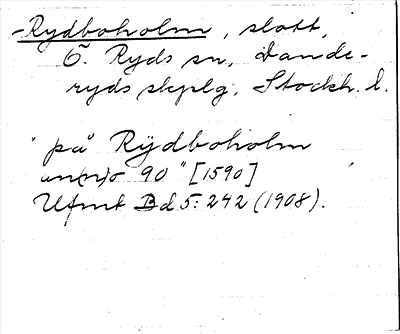 -Rydboholm, slott,
Ö. Ryds sn, Dande-
ryds skplg, Stockh. l.
"på Rÿdboholm
an(n)o 90" [1590]
Ufmt Bd 5: 242 (1908).